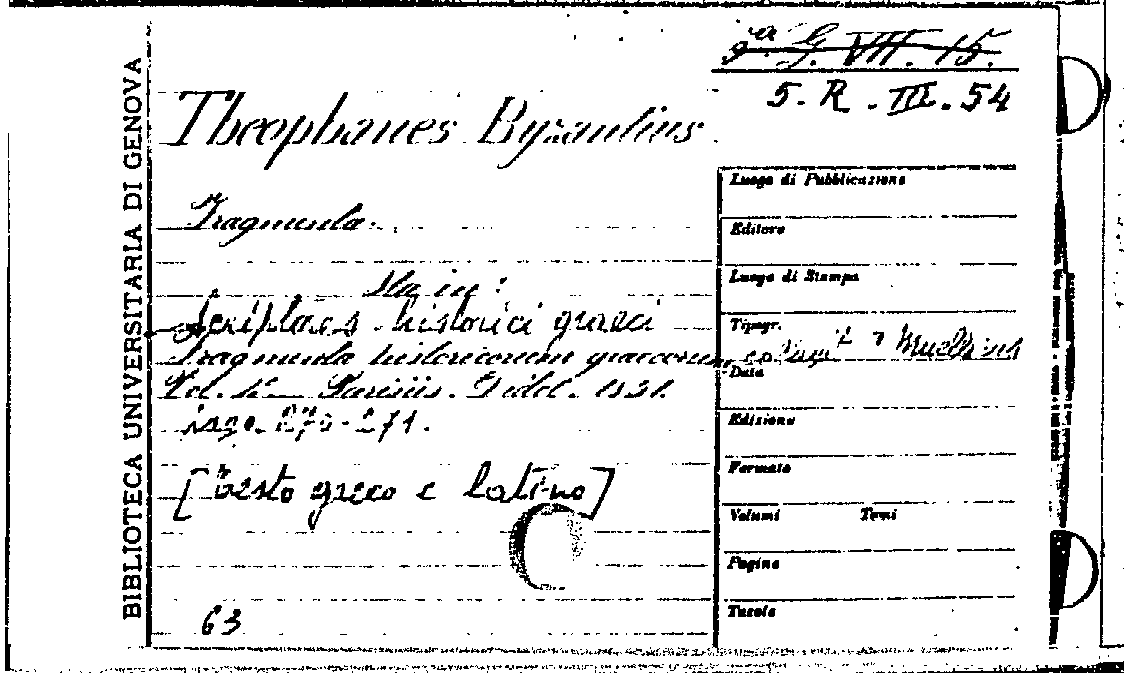 BIBLIOTECA UNIVERSITARIA DI GENOVA
9ª G. VII. 15.
5. R. III. 54
Theophanes Byzantius
Fragmenta.
Sta in:
Scriptores historici graeci
Fragmenta historicorum graecorum Muellerus
Vol. Parisiis. Didot. 1851.
270-271.
[Testo greco e latino]
63
Luogo di Pubblicazione
Editore
Luogo di Stampa
Tipogr.
Data
Edizione
Formato
Volumi Tomi
Pagine
Tavole